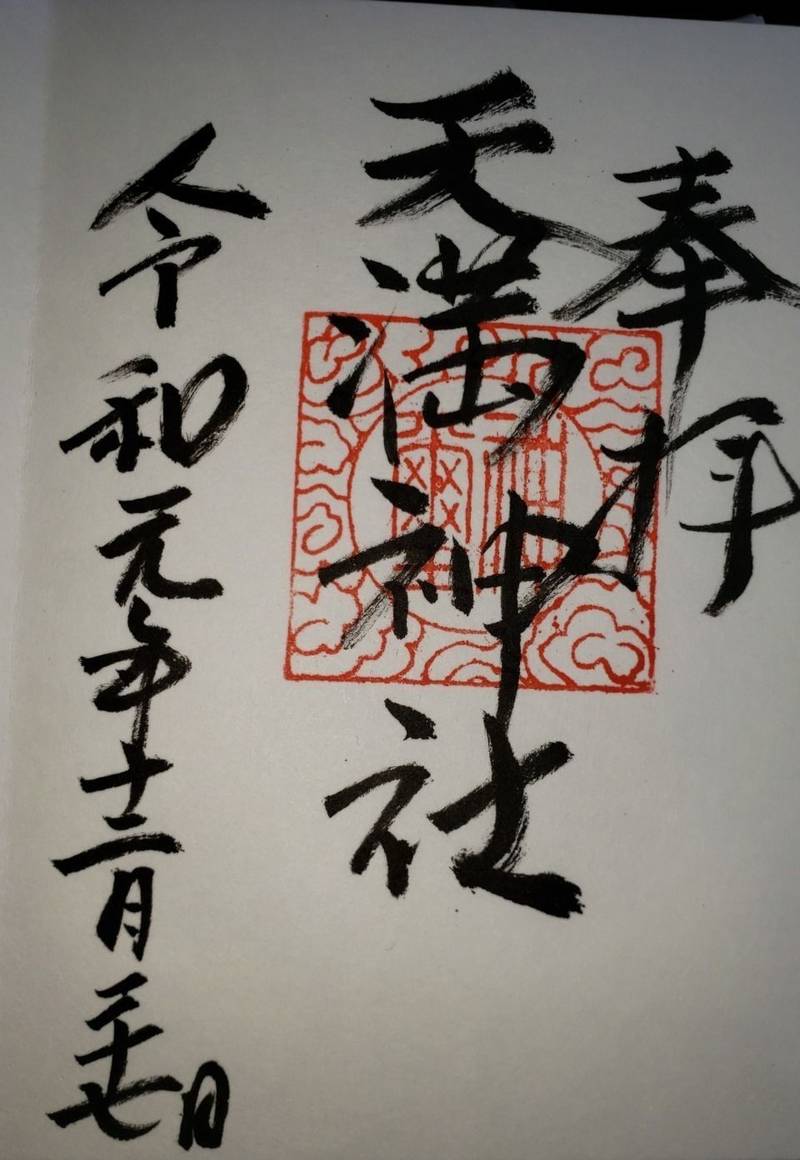 奉拝
天満神社
令和元年十二月二十七日